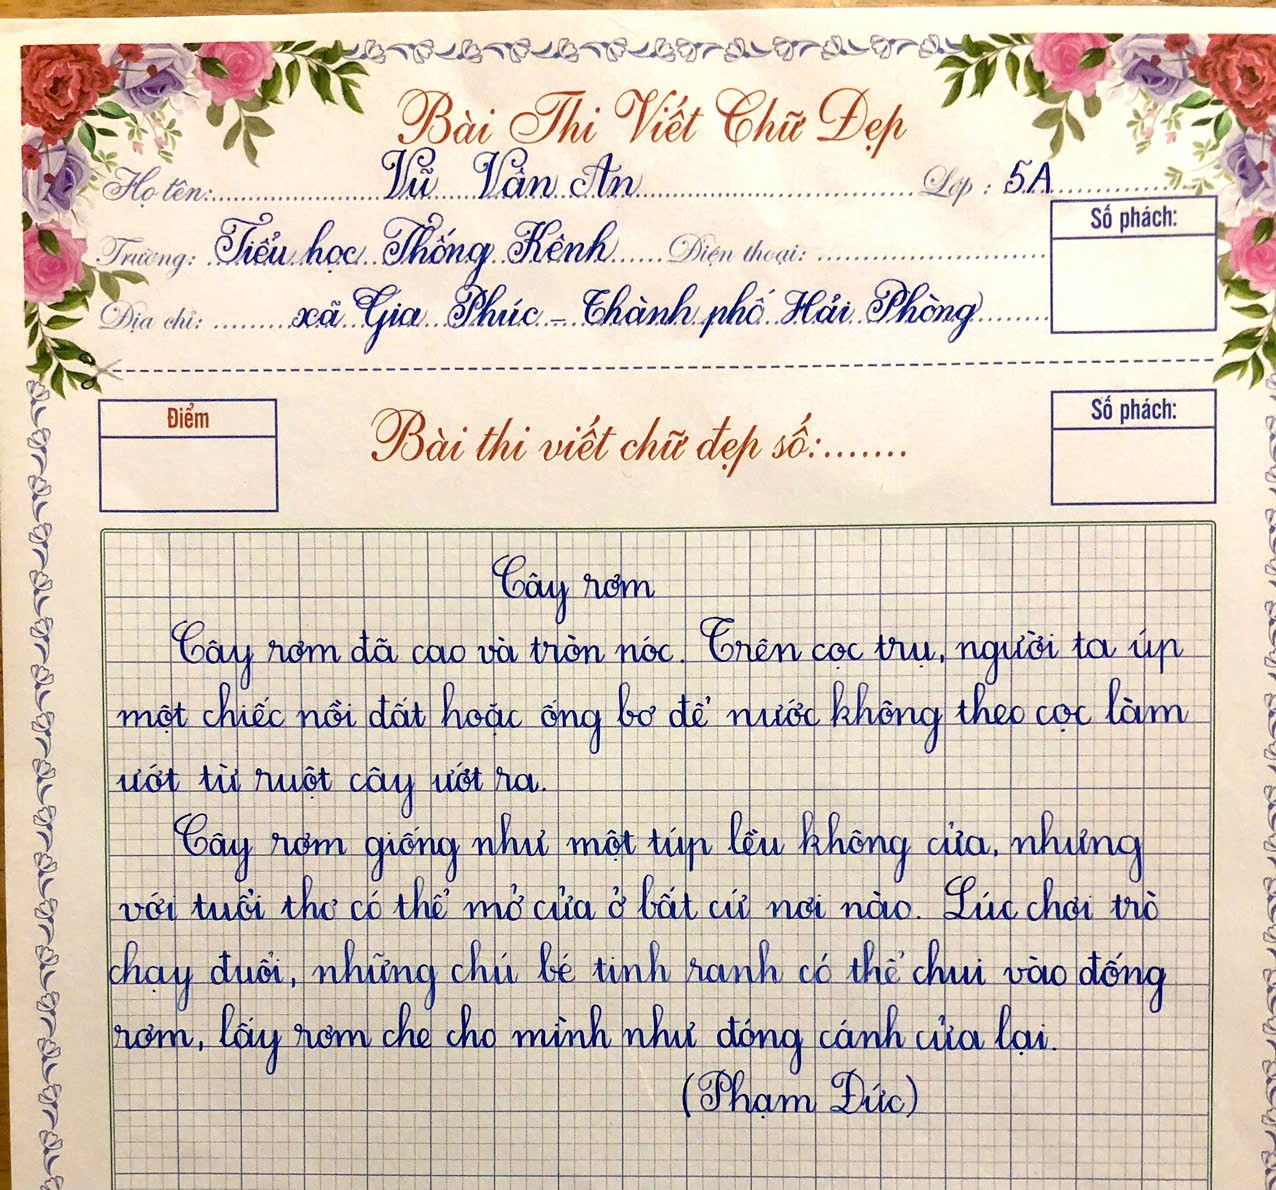 Bài Thi Viết Chữ Đẹp
Họ tên: Vũ Vân An Lớp : 5A
Trường: Tiểu học Thống Kênh Điện thoại:
Số phách:
Địa chỉ: xã Gia Phúc - Thành phố Hải Phòng
Điểm
Bài thi viết chữ đẹp số:.......
Số phách:
Cây rơm
Cây rơm đã cao và tròn nóc. Trên cọc trụ, người ta úp
một chiếc nồi đất hoặc ống bơ để nước không theo cọc làm
ướt từ ruột cây ướt ra.
Cây rơm giống như một túp lều không cửa, nhưng
với tuổi thơ có thể mở cửa ở bất cứ nơi nào. Lúc chơi trò
chạy đuổi, những chú bé tinh ranh có thể chui vào đống
rơm, lấy rơm che cho mình như đóng cánh cửa lại.
(Phạm Đức)